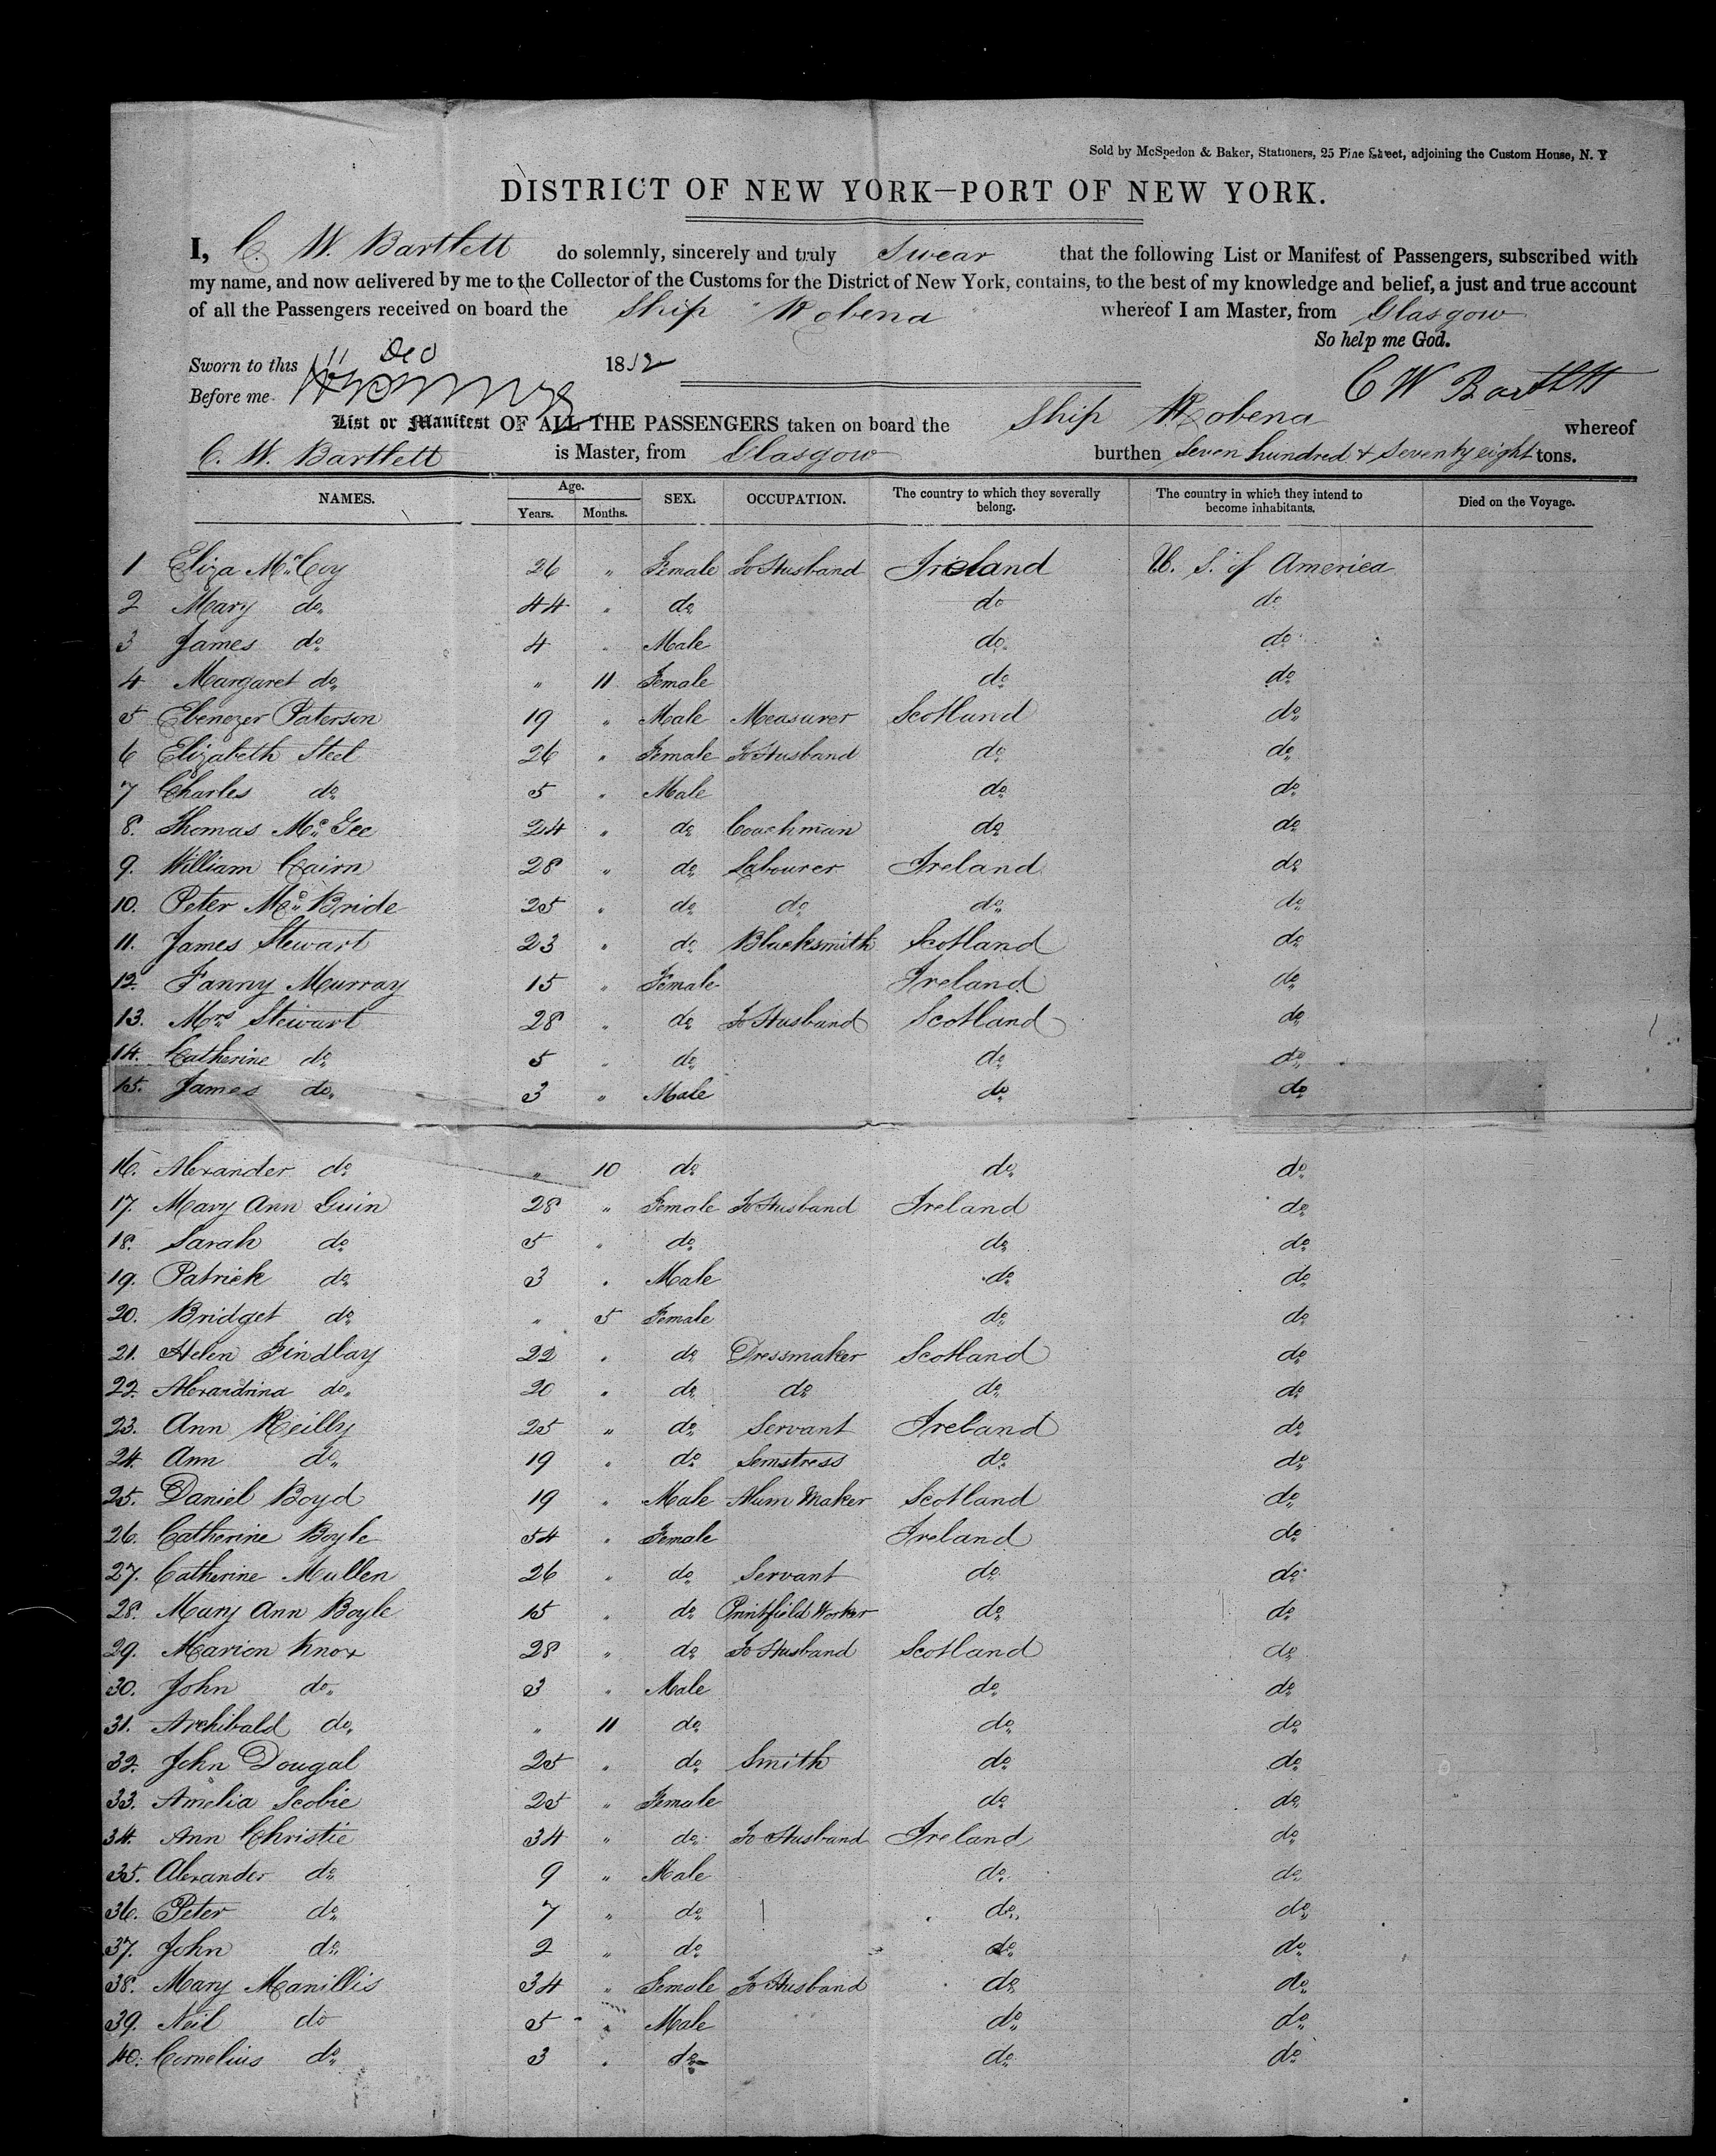 Sold by McSpedon & Baker, Stationers, 25 Pine Street, adjoining the Custom House, N. Y
DISTRICT OF NEW YORK—PORT OF NEW YORK.
I, C. W. Bartlett do solemnly, sincerely and truly Swear that the following List or Manifest of Passengers, subscribed with
my name, and now delivered by me to the Collector of the Customs for the District of New York, contains, to the best of my knowledge and belief, a just and true account
of all the Passengers received on board the Ship Robena whereof I am Master, from Glasgow
So help me God.
Sworn to this 11 Dec 1852
Before me C W Bartlett
List or Manifest OF ALL THE PASSENGERS taken on board the Ship Robena whereof
C. W. Bartlett is Master, from Glasgow burthen Seven hundred & Seventy eight tons.
NAMES. Age. Years. Months. SEX. OCCUPATION. The country to which they severally belong. The country in which they intend to become inhabitants. Died on the Voyage.
1 Eliza McCoy 26 " Female To Husband Ireland U. S. of America
2 Mary do 44 " do do do
3 James do 4 " Male do do
4 Margaret do " 11 Female do do
5 Ebenezer Paterson 19 " Male Measurer Scotland do
6 Elizabeth Steel 26 " Female To Husband do do
7 Charles do 5 " Male do do
8. Thomas McGee 24 " do Coachman do do
9. William Cairn 28 " do Labourer Ireland do
10. Peter McBride 25 " do do do do
11. James Stewart 23 " do Blacksmith Scotland do
12. Fanny Murray 15 " Female Ireland do
13. Mrs Stewart 28 " do To Husband Scotland do
14. Catherine do 5 " do do do
15. James do 3 " Male do do
16. Alexander do " 10 do do do
17. Mary Ann Guin 28 " Female To Husband Ireland do
18. Sarah do 5 " do do do
19. Patrick do 3 " Male do do
20. Bridget do " 5 Female do do
21. Helen Findlay 22 " do Dressmaker Scotland do
22. Alexandrina do 20 " do do do do
23. Ann Reilly 25 " do Servant Ireland do
24. Ann do 19 " do Semstress do do
25. Daniel Boyd 19 " Male Alum Maker Scotland do
26. Catherine Boyle 54 " Female Ireland do
27. Catherine Mullen 26 " do Servant do do
28. Mary Ann Boyle 15 " do Printfield Worker do do
29. Marion Knox 28 " do To Husband Scotland do
30. John do 3 " Male do do
31. Archibald do " 11 do do do
32. John Dougal 25 " do Smith do do
33. Amelia Scobie 25 " Female do do
34. Ann Christie 34 " do To Husband Ireland do
35. Alexander do 9 " Male do do
36. Peter do 7 " do do do
37. John do 2 " do do do
38. Mary Manillis 34 " Female To Husband do do
39. Neil do 5 " Male do do
40. Cornelius do 3 " do do do